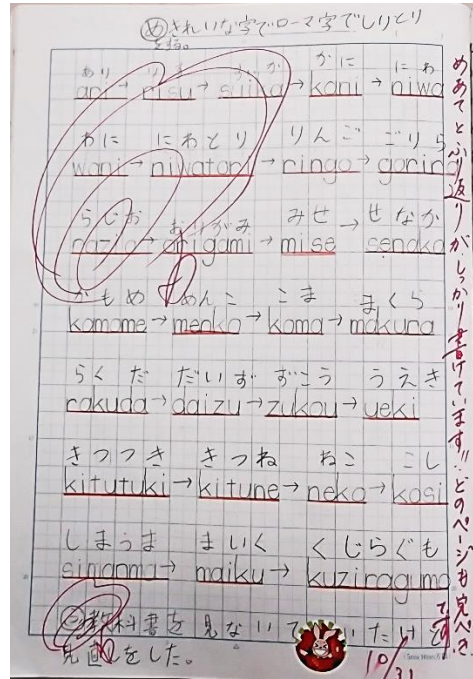 め きれいな字でローマ字でしりとり
を書く。
あり りす すいか かに にわ
ari → risu → suika → kani → niwa
わに にわとり りんご ごりら
wani → niwatori → ringo → gorira
らじお おりがみ みせ せなか
razio → origami → mise → senaka
かもめ めんこ こま まくら
kamome → menko → koma → makura
らくだ だいず ずこう うえき
rakuda → daizu → zukou → ueki
きつつき きつね ねこ こし
kitutuki → kitune → neko → kosi
しまうま まいく くじらぐも
simauma → maiku → kuziragumo
教科書を見ないで いたけど
見直しをした。
めあてとふり返りがしっかり書けています!!どのページも完ぺき
です
10/31